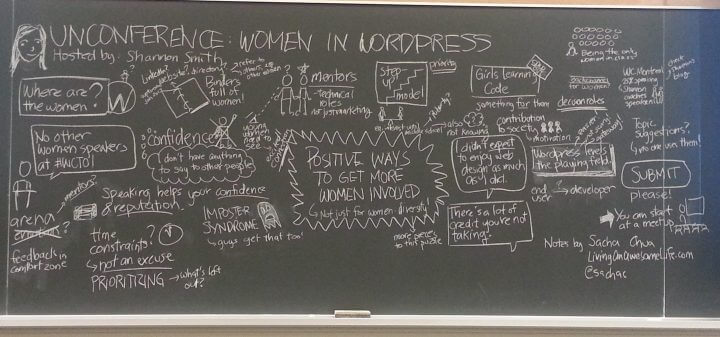 UNCONFERENCE: WOMEN IN WORDPRESS
Hosted by: Shannon Smith
Where are
the women?
No other
women speakers
at #WCTO!
mentors?
arena
feedback in
comfort zone
LinkedIn?
website directory?
refer to
others
Binders
full of
women!
confidence
don't have anything
to say to other people
Speaking helps your confidence
& reputation.
time
constraints?
not an excuse
PRIORITIZING → what's left
out?
IMPOSTER
SYNDROME
guys get that too!
mentors
technical
roles
not just marketing
step
up
model
priority
POSITIVE WAYS
TO GET MORE
WOMEN INVOLVED
Not just for women: diversity!
more pieces
to this puzzle
Girls learning
Code
something for them
contribution
to society
also
not known
motivation
I didn't expect
to enjoy web
design as much
as I did.
There's a lot of
credit you're not
taking.
Being the only
woman in class
for women?
decision roles
Wordpress levels
the playing field.
end
user
→ developer
WC Mentors
speaking
Shannon
coaches
speakers
check
Shannon's
blog
Topic
Suggestions?
you can use them!
SUBMIT
please!
You can start
at a meetup
Notes by Sacha Chua
LivingAnAwesomeLife.com
@sachac